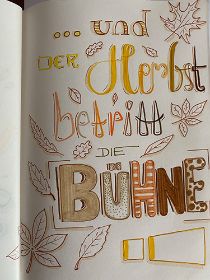 ... und
DER Herbst
betritt
DIE
BÜHNE